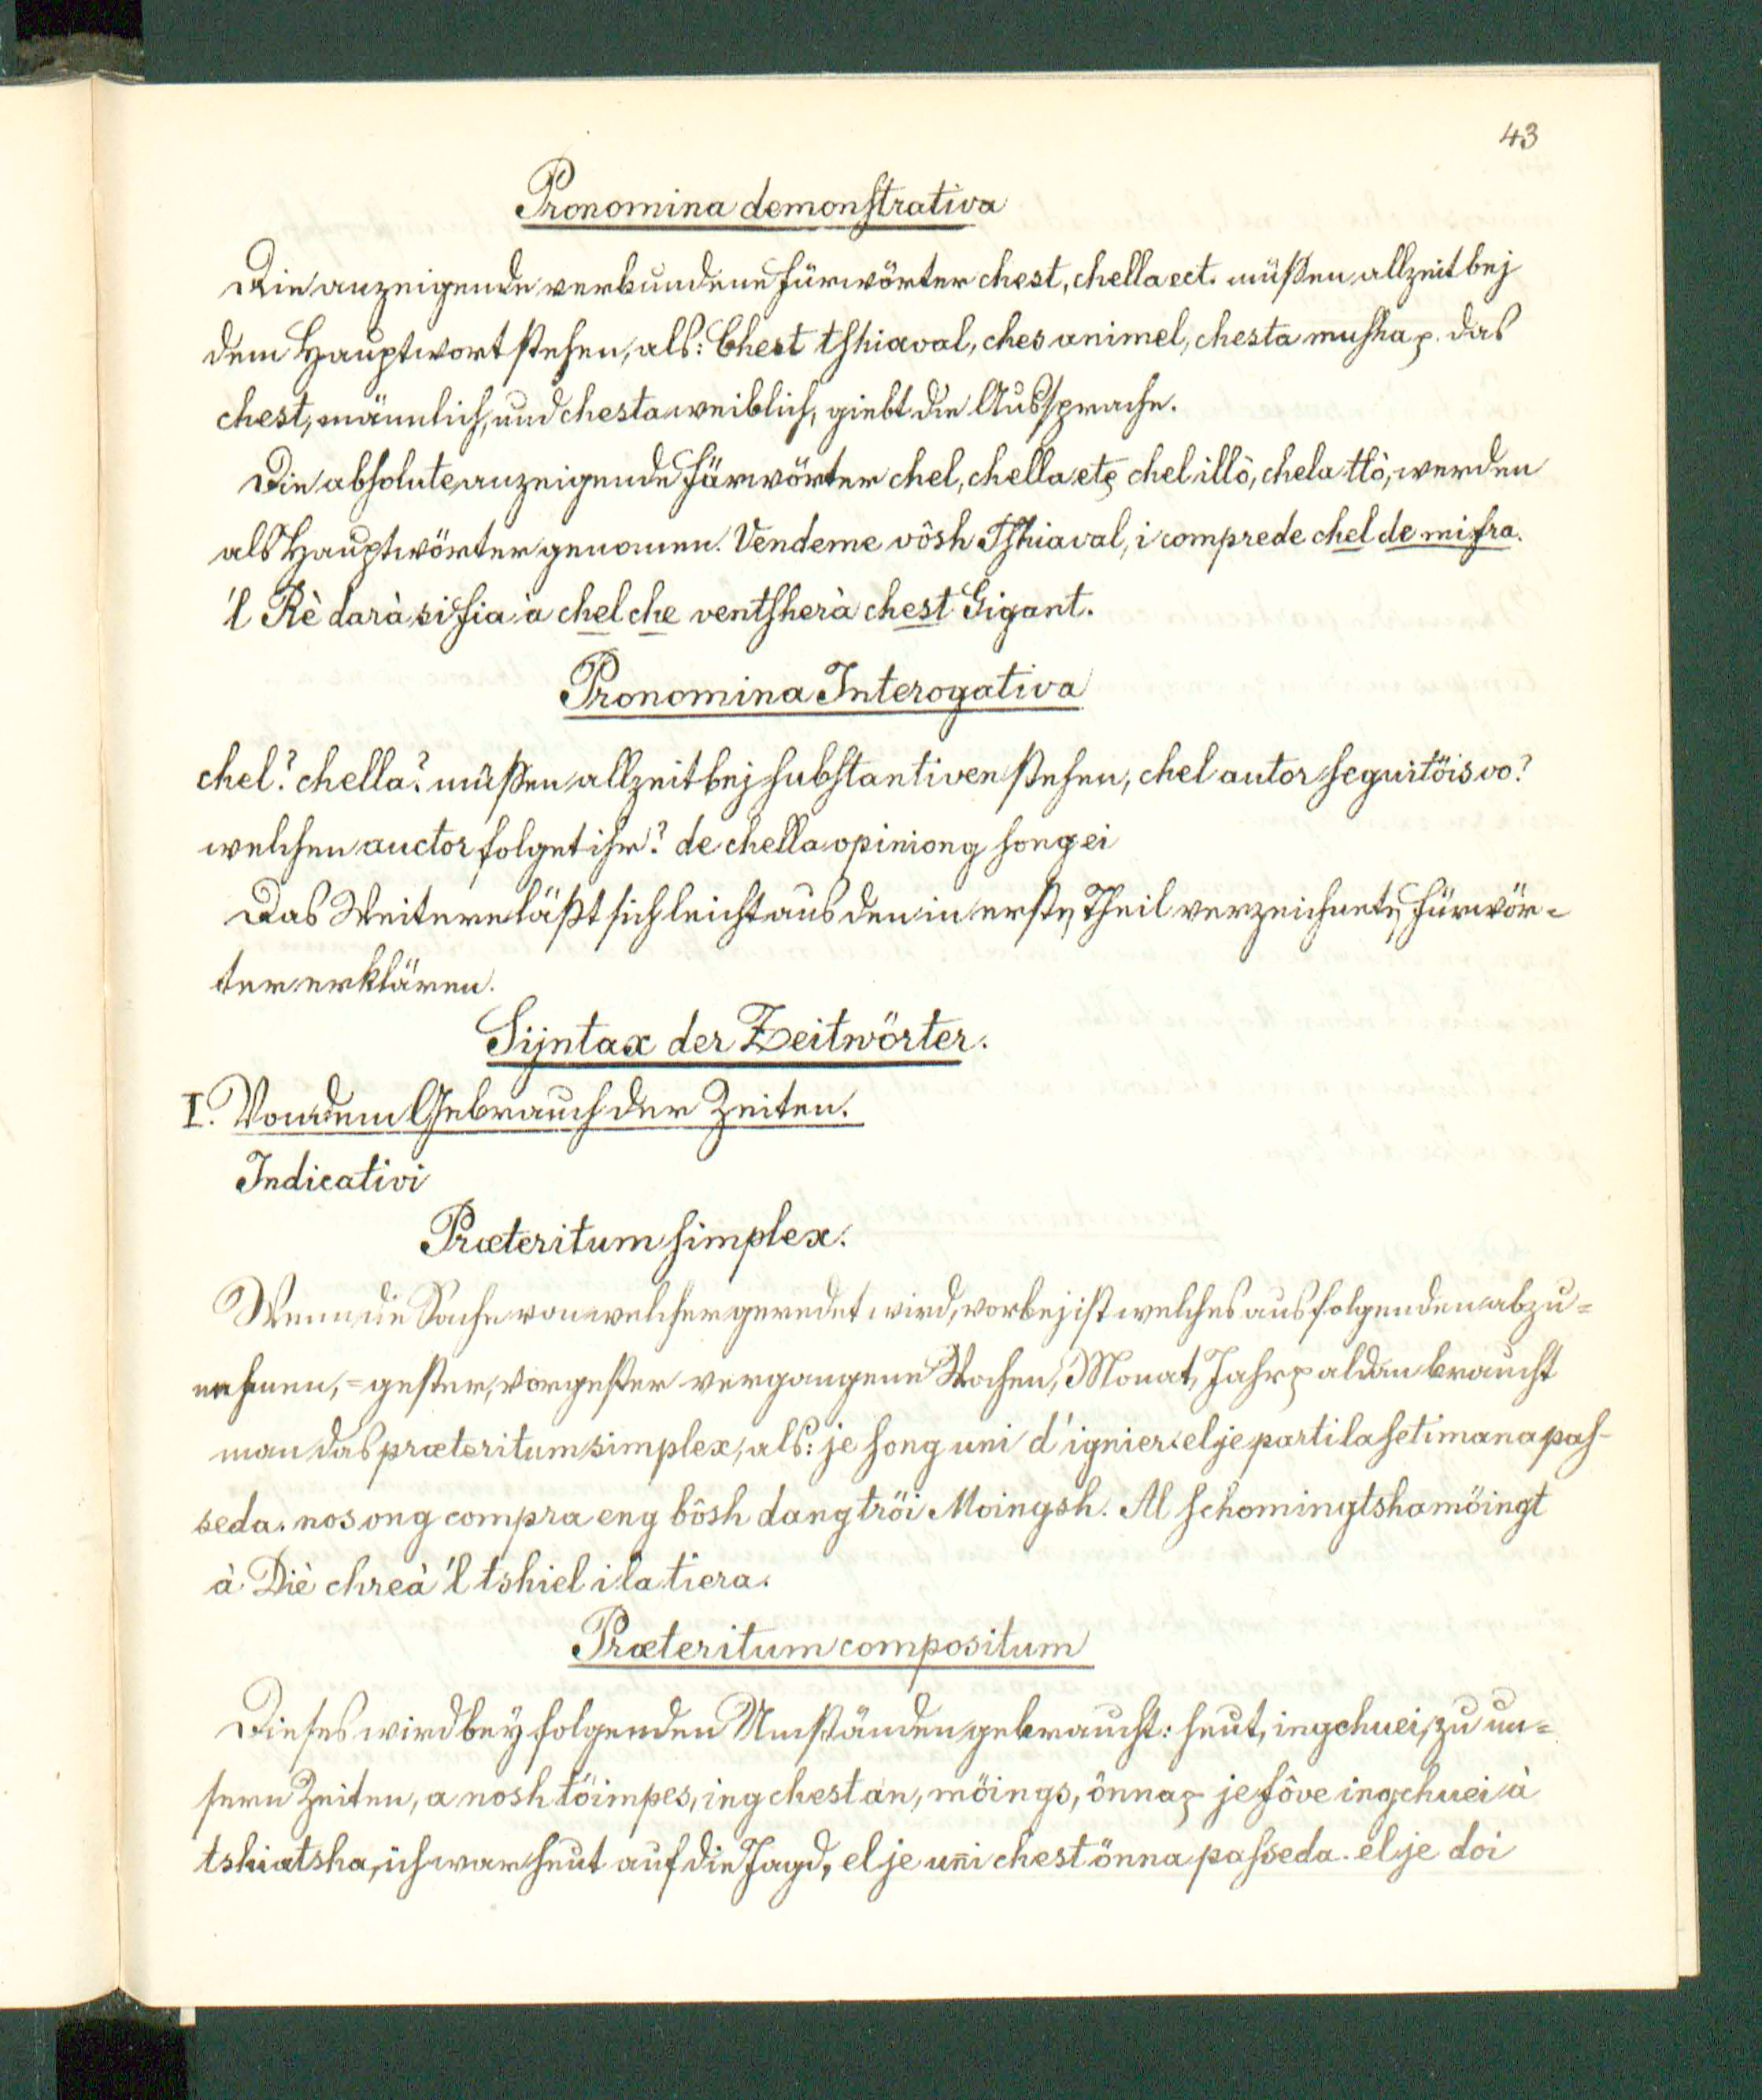 43
Pronomina demonstrativa
Die anzeigende verbundene Fürwörter chest, chella ect. müßen allzeit bej
dem Hauptwort stehen, als: Chest tshiaval, ches animel, chesta musha p. das
chest, männlich, und chesta weiblich, giebt die Aussprache.
Die absolute anzeigende Fürwörter chel, chella etc chel illò, chela tlò, werden
als Hauptwörter genomen. Vendeme vôsh Tshiaval, i comprede chel de mi fra.
'l Rè darà si fia à chel che ventsherà chest Gigant.
Pronomina Interogativa
chel? chella? müßen allzeit bej substantiven stehen, chel autor seguitöis vo?
welchen auctor folget ihr? de chella opiniong song ei
Das Weitere läßt sich leicht aus den in ersten Theil verzeichneten Fürwör=
ter erklären.
Sijntax der Zeitwörter.
I. Von dem Gebrauch der Zeiten.
Indicativi
Præteritum simplex.
Wenn die Sache von welcher geredet wird, vorbej ist welches aus folgenden abzu=
nehmen, = gester, vorgester vergangene Wochen, Monat, Jahr p aldan braucht
man das præteritum simplex, als: je song uni d'ignier. el je parti la setimana pas-
seda. nos ong compra eng bôsh dang tröi Moingsh. Al schomingtshamöingt
à Diè chreà 'l tshiel i la tiera.
Præteritum compositum
Dieses wird beÿ folgenden Umständen gebraucht: heut, ingchuei, zu un=
sern Zeiten, a nosh töimpes, ing chest an, möings, önna p je fôve ingchuei à
tshiatsha, ich war heut auf die Jagd, el je uñi chest önna passeda. el je doi